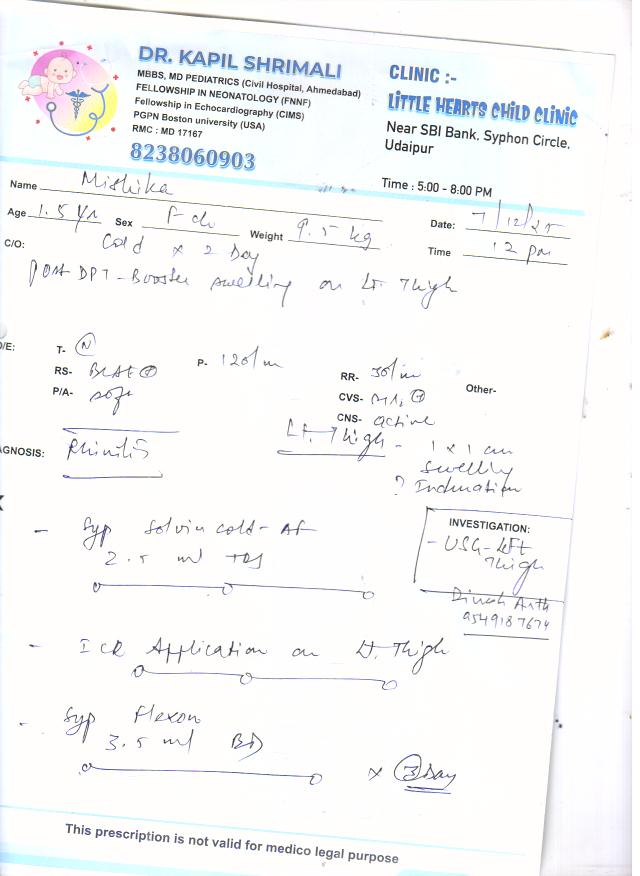 DR. KAPIL SHRIMALI
MBBS, MD PEDIATRICS (Civil Hospital, Ahmedabad)
FELLOWSHIP IN NEONATOLOGY (FNNF)
Fellowship in Echocardiography (CIMS)
PGPN Boston university (USA)
RMC : MD 17167
8238060903
CLINIC :-
LiTTLE HEARTS CHiLD CLiNiC
Near SBI Bank, Syphon Circle,
Udaipur
Time : 5:00 - 8:00 PM
Name Mishika
Age 1.5 Yr Sex F Weight 9.5 kg Date: 7/12/25
Time 12 pm
C/O: Cold x 2 Day
Post DPT-Booster swelling on Lt. Thigh
O/E: T- N
RS- BLAE + P- 120/m RR- 30/m Other-
P/A- soft CVS- +
CNS- active
Lt. Thigh - 1 x 1 cm
Swelling
? Induration
DIAGNOSIS: Rhinitis
INVESTIGATION:
- USG - Left
Thigh
9549187674
- Syp Solvin cold-AF
2.5 ml TDS
- ICE Application on Lt. Thigh
- Syp Flexon
3.5 ml BD
x 3 Day
This prescription is not valid for medico legal purpose